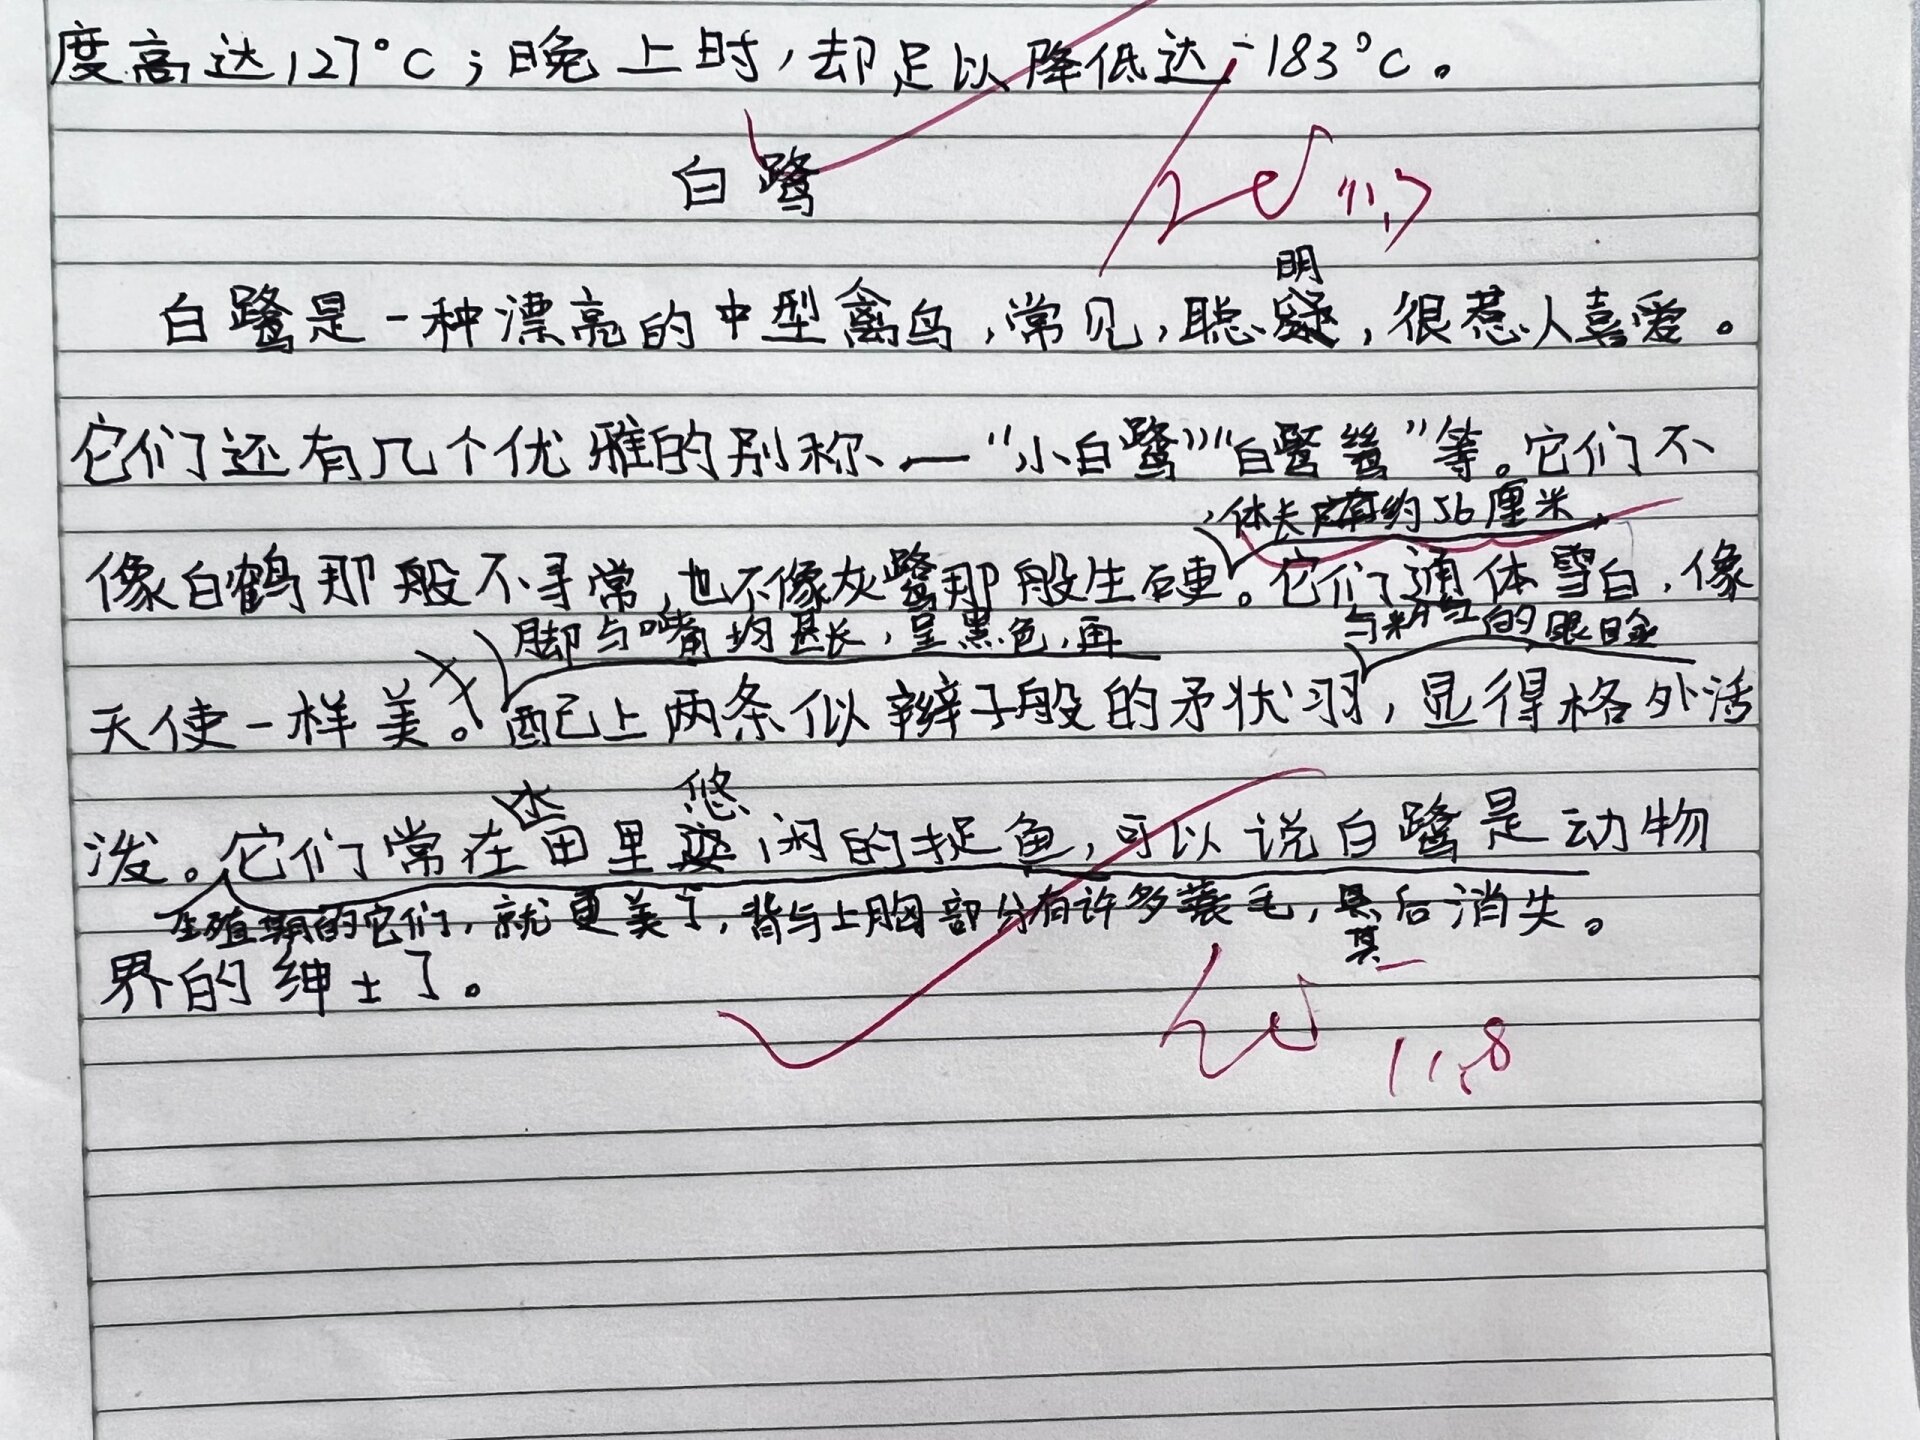 度高达127°C；晚上时，却足以降低达-183°C。
白鹭
11.7
明
白鹭是一种漂亮的中型禽鸟，常见，聪，很惹人喜爱。
它们还有几个优雅的别称——“小白鹭”“白鹭鸶”等。它们不
，体长约56厘米，
像白鹤那般不寻常，也不像灰鹭那般生硬。它们通体雪白，像
脚与嘴均甚长，呈黑色，再
与粉红的眼睑
天使一样美。配上两条似辫子般的矛状羽，显得格外活
水 悠
泼。它们常在田里闲的捉鱼，可以说白鹭是动物
生殖期的它们，就更美了，背与上胸部分有许多蓑毛，后消失。
其
界的绅士了。
11.8